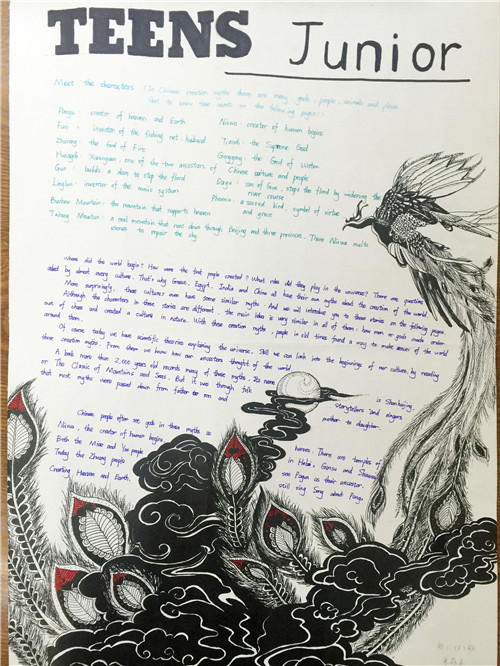 TEENS Junior
Meet the characters (In Chinese creation myths there are many gods, people, animals and places
Get to know some names in the following pages!)
Pangu: creator of heaven and Earth
Nüwa: creator of human beings
Fuxi: inventor of the fishing net, husband
Tiandi: the Supreme God
Zhurong: the God of Fire
Gonggong: the God of Water
Huangdi Xuanyuan: one of the two ancestors of Chinese culture and people
Gun: builds a dam to stop the flood
Dayu: son of Gun, stops the flood by widening the
river course
Linglun: inventor of the music system
Phoenix: a sacred bird, symbol of virtue
and grace
Buzhou Mountain: the mountain that supports heaven
Taihang Mountain: a real mountain that runs down through Beijing and three provinces. There Nüwa melts
stones to repair the sky
Where did the world begin? How were the first people created? What roles did they play in the universe? These are questions
asked by almost every culture. That's why Greece, Egypt, India and China all have their own myths about the creation of the world.
More surprisingly, these cultures even have some similar myths. And we will introduce you to these stories on the following pages.
Although the characters in these stories are different, the main idea is very similar in all of them: how man or gods made order
out of chaos and created a culture in nature. With these creation myths, people in old times found a way to make sense of the world
around them.
Of course, today we have scientific theories exploring the universe. Still we can look into the beginnings of our culture by reading
these creation myths. From them we know how our ancestors thought of the world.
A book more than 2,000 years old records many of these myths. Its name is Shanhaijing,
or The Classic of Mountains and Seas. But it was through folk storytellers and singers
that most myths were passed down from father to son and mother to daughter.
Chinese people often see gods in these myths as heroes. There are temples of
Nüwa, the creator of human beings in Hebei, Gansu and Shaanxi.
Both the Miao and Yao people see Pangu as their ancestor.
Today the Zhuang people still sing Song about Pangu
Creating Heaven and Earth.